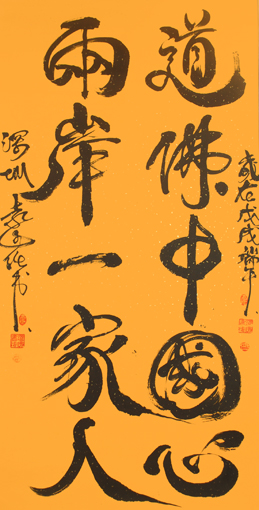 道佛中國心
兩岸一家人
歲在戊戌瑞年
深圳